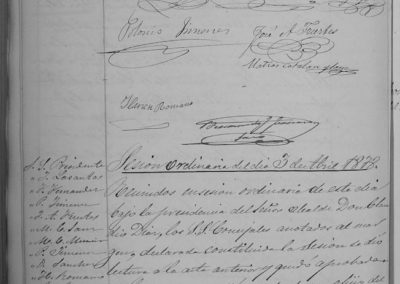 Polonio Ximenez
José A. Fuertes
Matias Catalan
Ylarion Romano
Sesion ordinaria del dia 3 de Abril 1872.
S. S. Presidente
" Losantos
" Fernandez
" P. Jimenez
" J. A. Fuertes
" M. C. Sanz
" P. Jimenez
" Sanchez
" H. Romano
Reunidos en sesion ordinaria de este dia
bajo la presidencia del Señor Alcalde Don Clau
dio Diaz, los S.S. Concejales anotados al mar
gen, declarada constituida la sesion se dió
lectura a la acta anterior y quedó aprobada